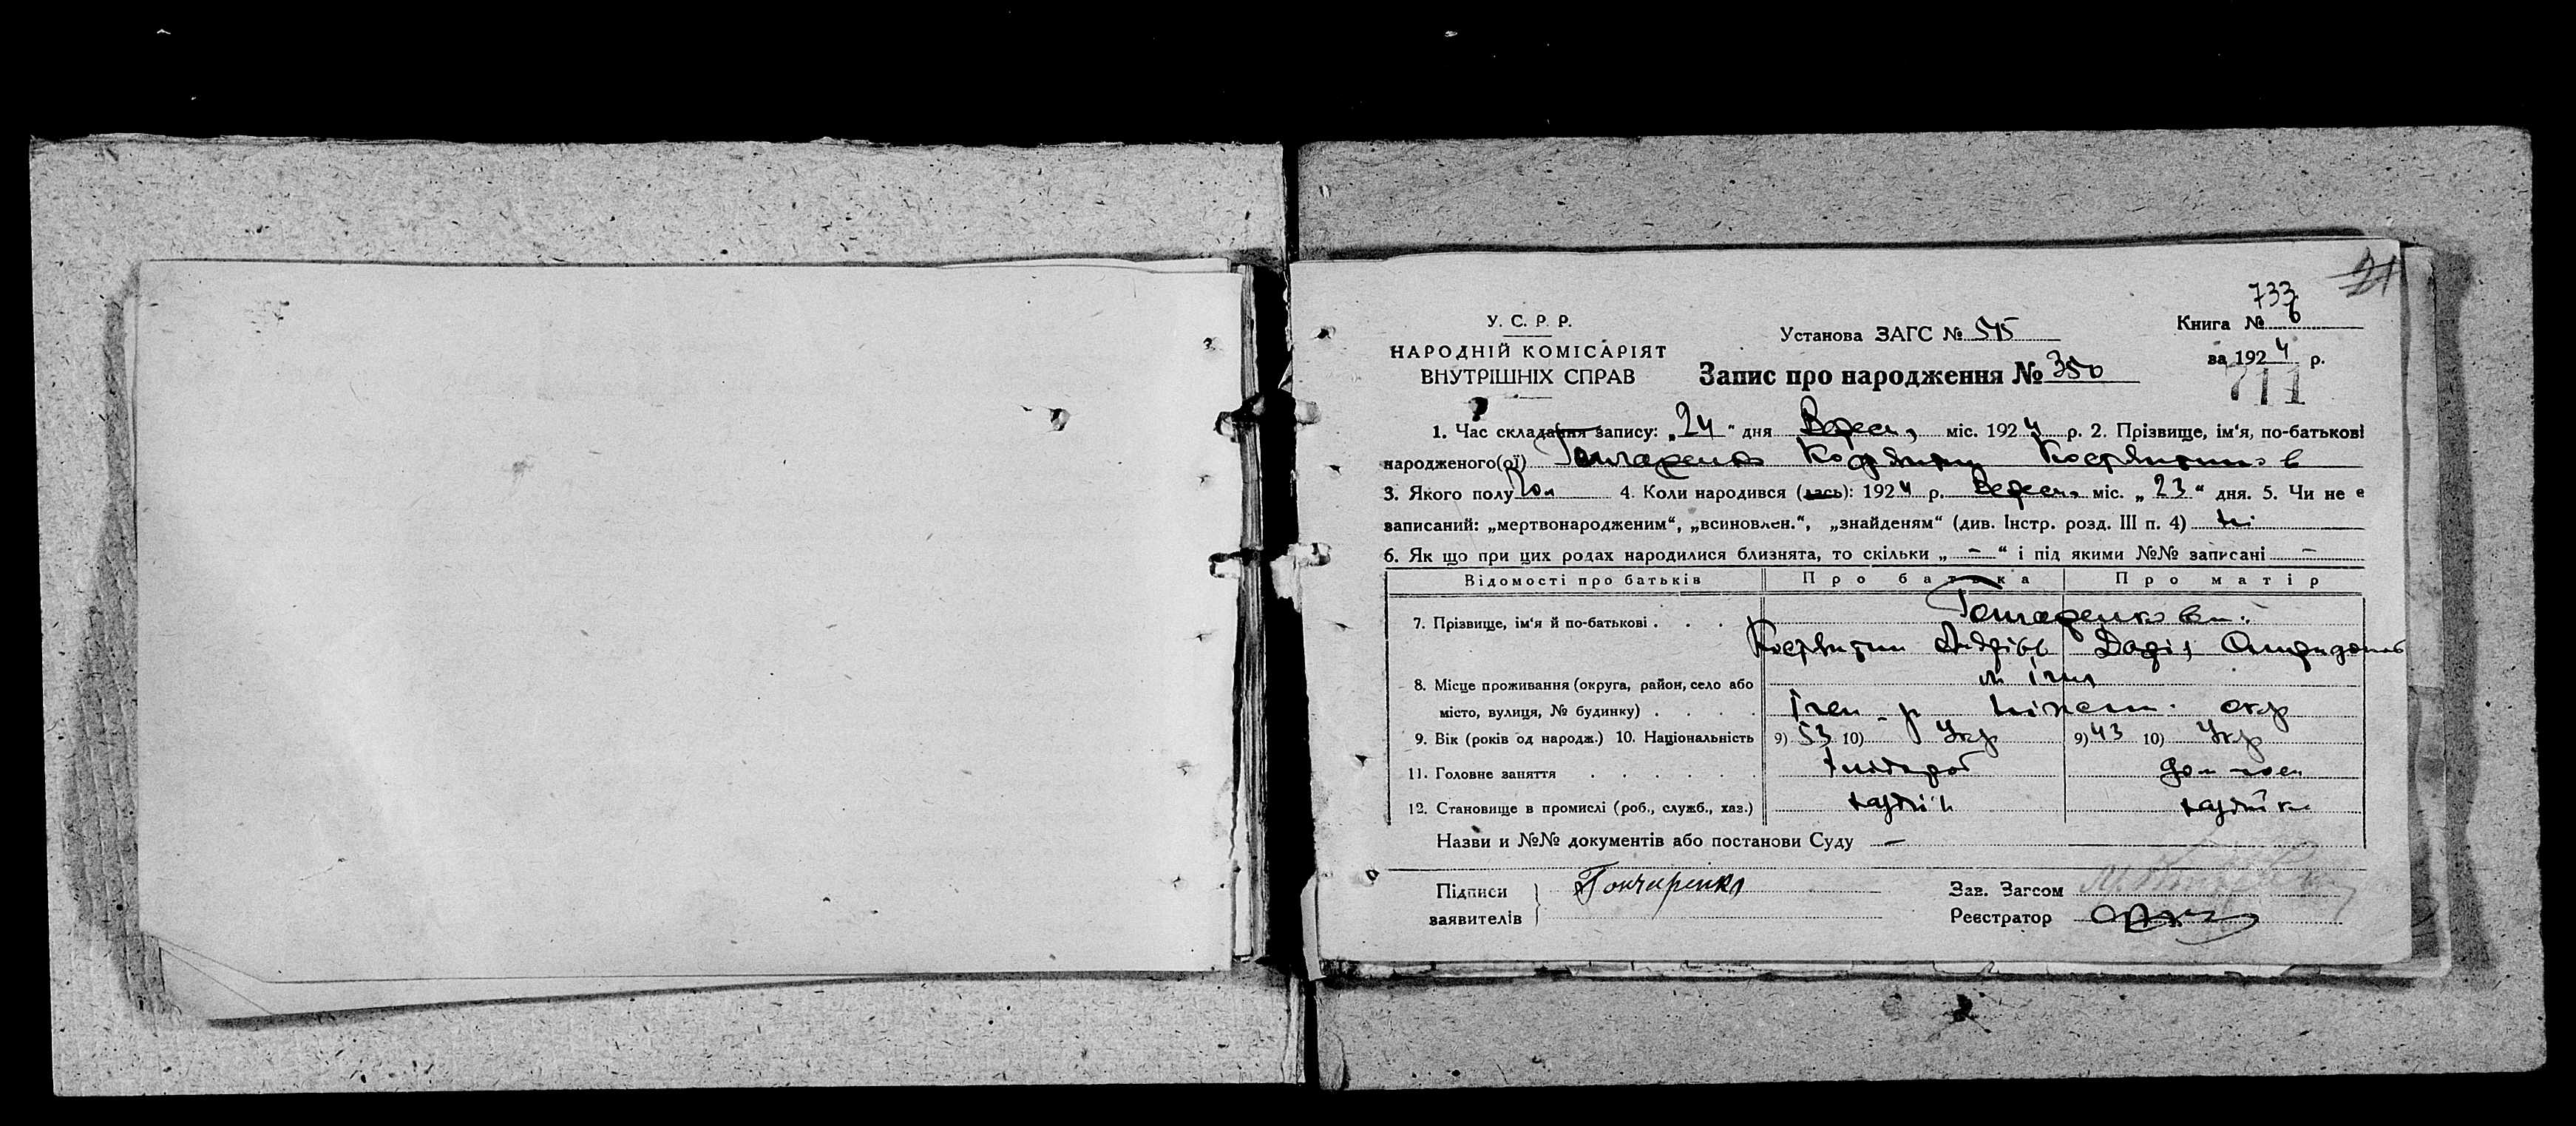 21
733
У. С. Р. Р.
Установа ЗАГС № 515
Книга № 6
НАРОДНІЙ КОМІСАРІЯТ
ВНУТРІШНІХ СПРАВ
за 1924 р.
Запис про народження № 350
711
1. Час складання запису: „24“ дня Верес, міс. 1924 р. 2. Прізвище, ім'я, по-батькові
народженого(ої) Гончаренко Костянтин Костянтинов
3. Якого полу Чол 4. Коли народився (лась): 1924 р. Верес, міс. „23“ дня. 5. Чи не є
записаний: „мертвонародженим“, „всиновлен.“, „знайденям“ (див. Інстр. розд. III п. 4) ні
6. Як що при цих родах народилися близнята, то скільки „ – “ і під якими №№ записані –
Відомості про батьків Про батька Про матір
Гончаренкови
7. Прізвище, ім'я й по-батькові . . . .
Костянтин Андріїв Дарія Спиридонов
8. Місце проживання (округа, район, село або м Ічня
місто, вулиця, № будинку) . . . . Ічен р Ніжен. окр
9. Вік (років од народж.) 10. Національність 9) 53 10) Укр 9) 43 10) Укр
11. Головне заняття . . . . . . хлібороб дом госп
12. Становище в промислі (роб., служб., хаз.) хазяїн хазяйка
Назви и №№ документів або постанови Суду –
Підписи Гончаренко Зав. Загсом
заявителів Реєстратор